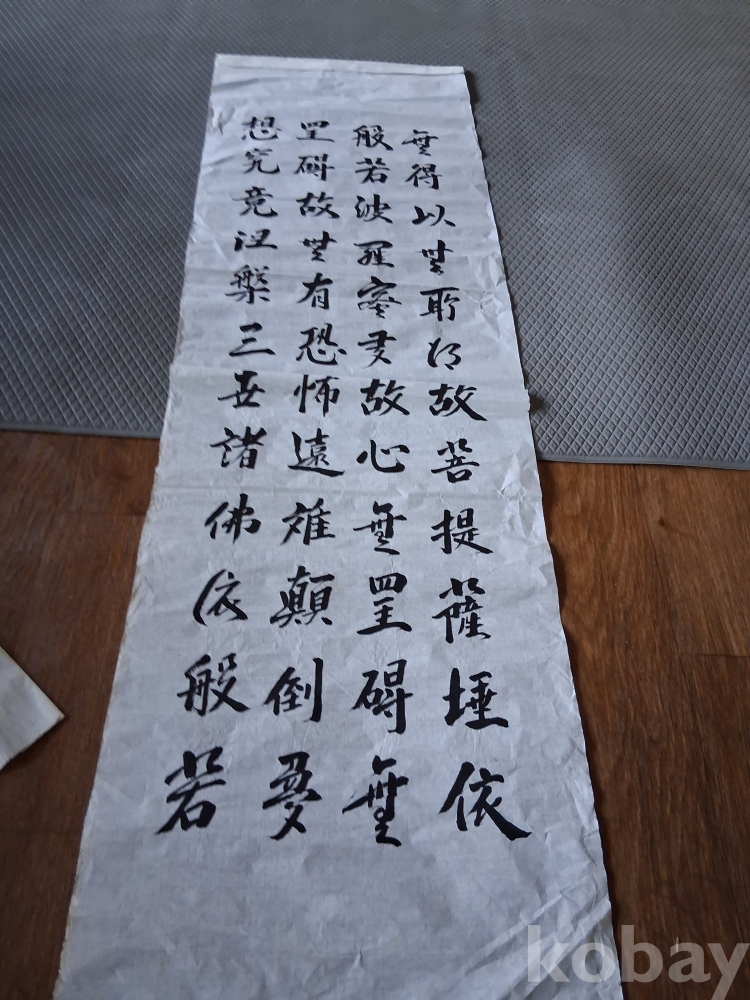 無得以無所得故菩提薩埵依
般若波羅蜜多故心無罣碍無
罣碍故無有恐怖遠離顛倒夢
想究竟涅槃三世諸佛依般若
kobay